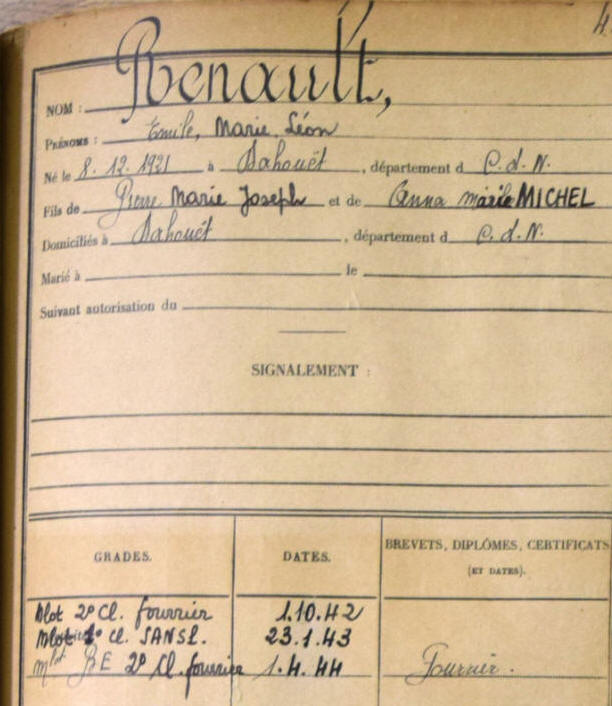 4.
NOM : Renault,
PRÉNOMS : Emile, Marie, Léon
Né le 8.12.1921 à Dahouët, département d C.d.N.
Fils de Pierre Marie Joseph et de Anna marie MICHEL
Domiciliés à Dahouët, département d C.d.N.
Marié à le
Suivant autorisation du
SIGNALEMENT :
GRADES. DATES. BREVETS, DIPLÔMES, CERTIFICATS
(ET DATES).
Mlot 2e Cl. fourrier 1.10.42
Cl. SANSL. 23.1.43
Mlot BE 2e Cl. fourrier 1.4.44 Fourrier.